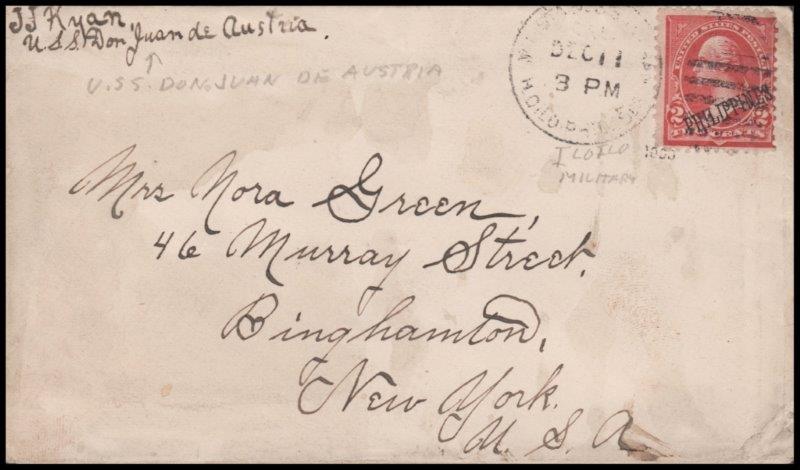 JJ Ryan,
U.S.S. Don Juan de Austria.
U.S.S. DON JUAN DE AUSTRIA
DEC 11
3 PM
UNITED STATES POSTAGE
PHILIPPINES
2 2
TWO CENTS
ILOILO
MILITARY
Mrs Nora Green,
46 Murray Street.
Binghamton,
New York.
U. S. A